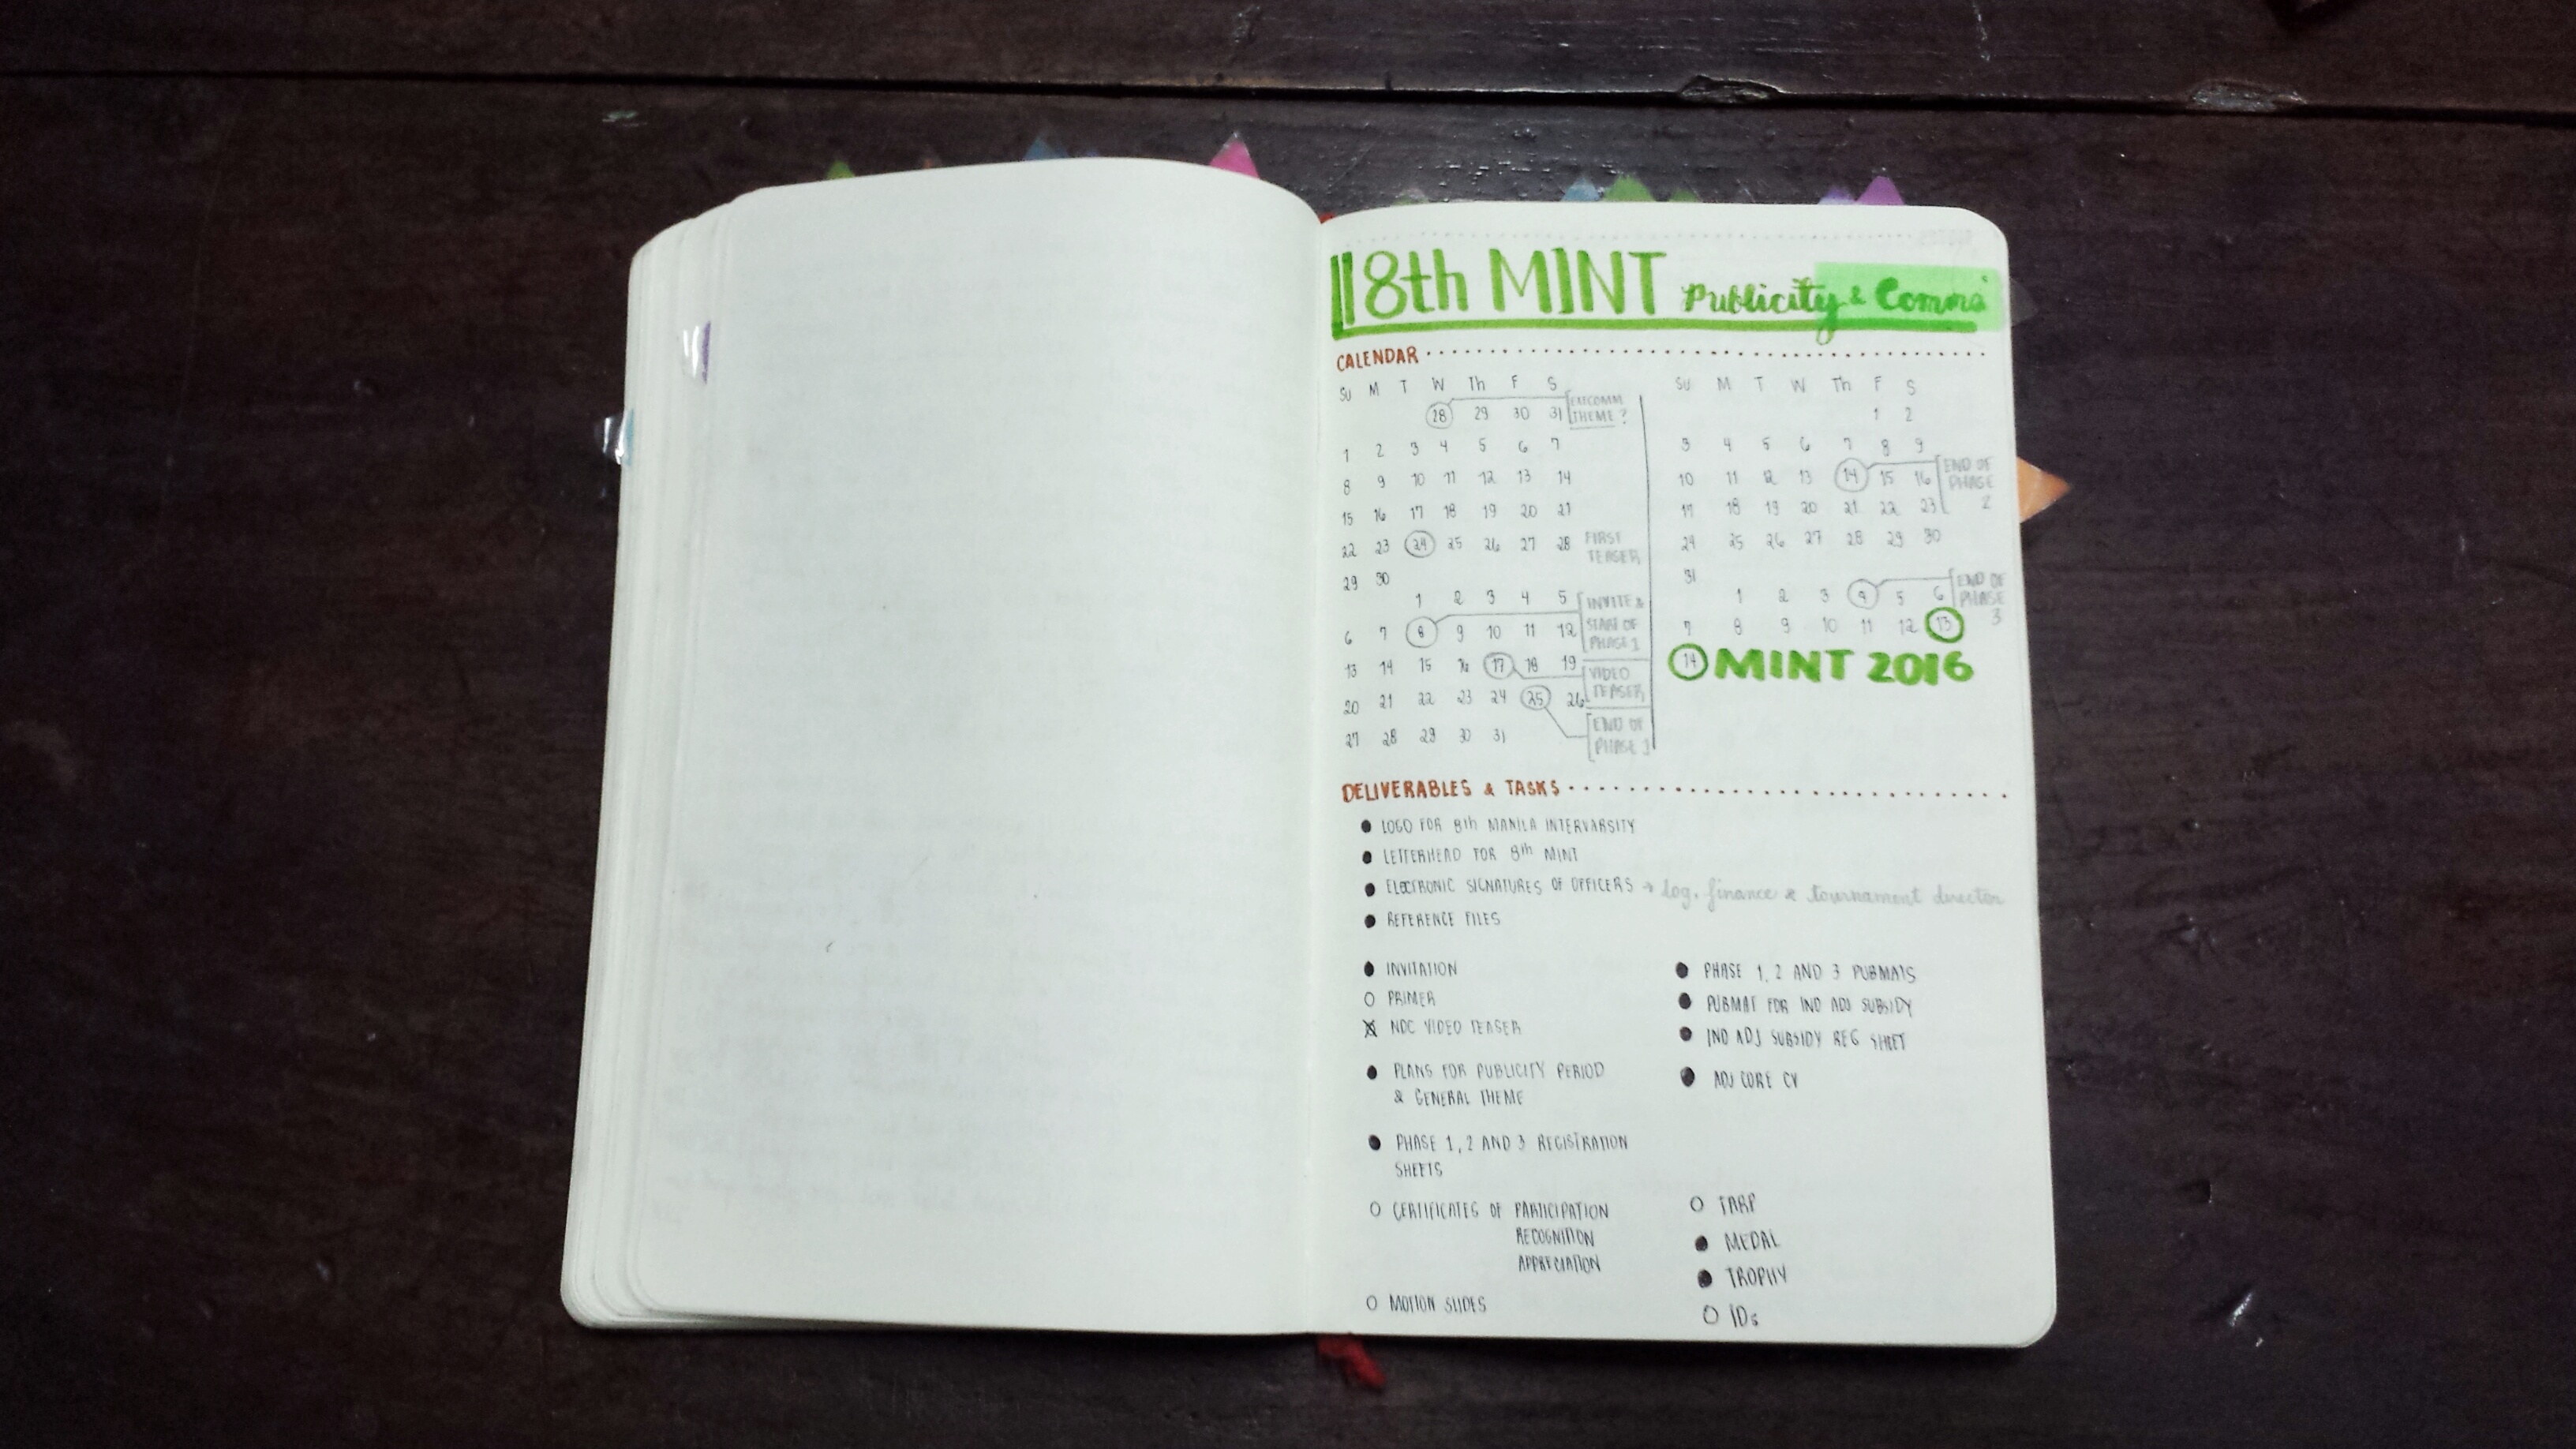 8th MINT Publicity & Comms
CALENDAR
SU M T W Th F S
28 29 30 31 EXECOMM
THEME?
1 2 3 4 5 6 7
8 9 10 11 12 13 14
15 16 17 18 19 20 21
22 23 24 25 26 27 28 FIRST
TEASER
29 30
1 2 3 4 5 INVITE &
START OF
PHASE 1
6 7 8 9 10 11 12
13 14 15 16 17 18 19 VIDEO
TEASER
20 21 22 23 24 25 26
27 28 29 30 31 END OF
PHASE 1
SU M T W Th F S
1 2
3 4 5 6 7 8 9
10 11 12 13 14 15 16 END OF
PHASE
2
17 18 19 20 21 22 23
24 25 26 27 28 29 30
31
1 2 3 4 5 6 END OF
PHASE
3
7 8 9 10 11 12 13
14 MINT 2016
DELIVERABLES & TASKS
LOGO FOR 8th MANILA INTERVARSITY
LETTERHEAD FOR 8th MINT
ELECTRONIC SIGNATURES OF OFFICERS → log, finance & tournament director
REFERENCE FILES
INVITATION
PRIMER
NDC VIDEO TEASER
PLANS FOR PUBLICITY PERIOD
& GENERAL THEME
PHASE 1, 2 AND 3 REGISTRATION
SHEETS
CERTIFICATES OF PARTICIPATION
RECOGNITION
APPRECIATION
MOTION SLIDES
PHASE 1, 2 AND 3 PUBMATS
PUBMAT FOR IND ADJ SUBSIDY
IND ADJ SUBSIDY REG SHEET
ADJ CORE CV
TARP
MEDAL
TROPHY
IDs